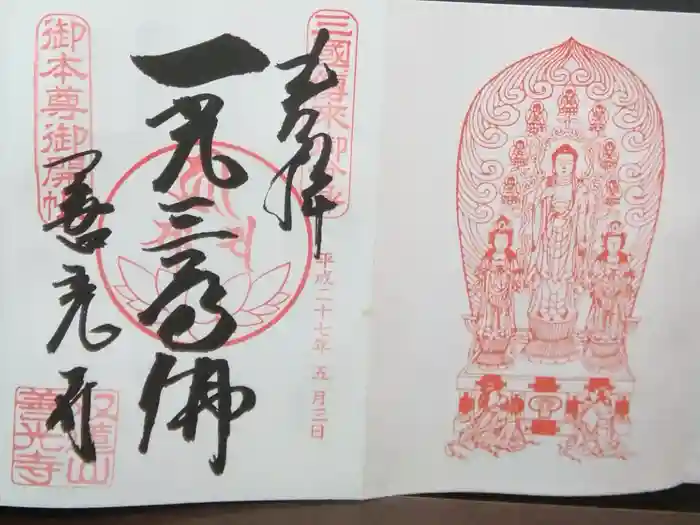 三國傳来御分身
奉拝
平成二十七年五月三日
一光三尊佛
善光寺
御本尊御開帳
善光寺